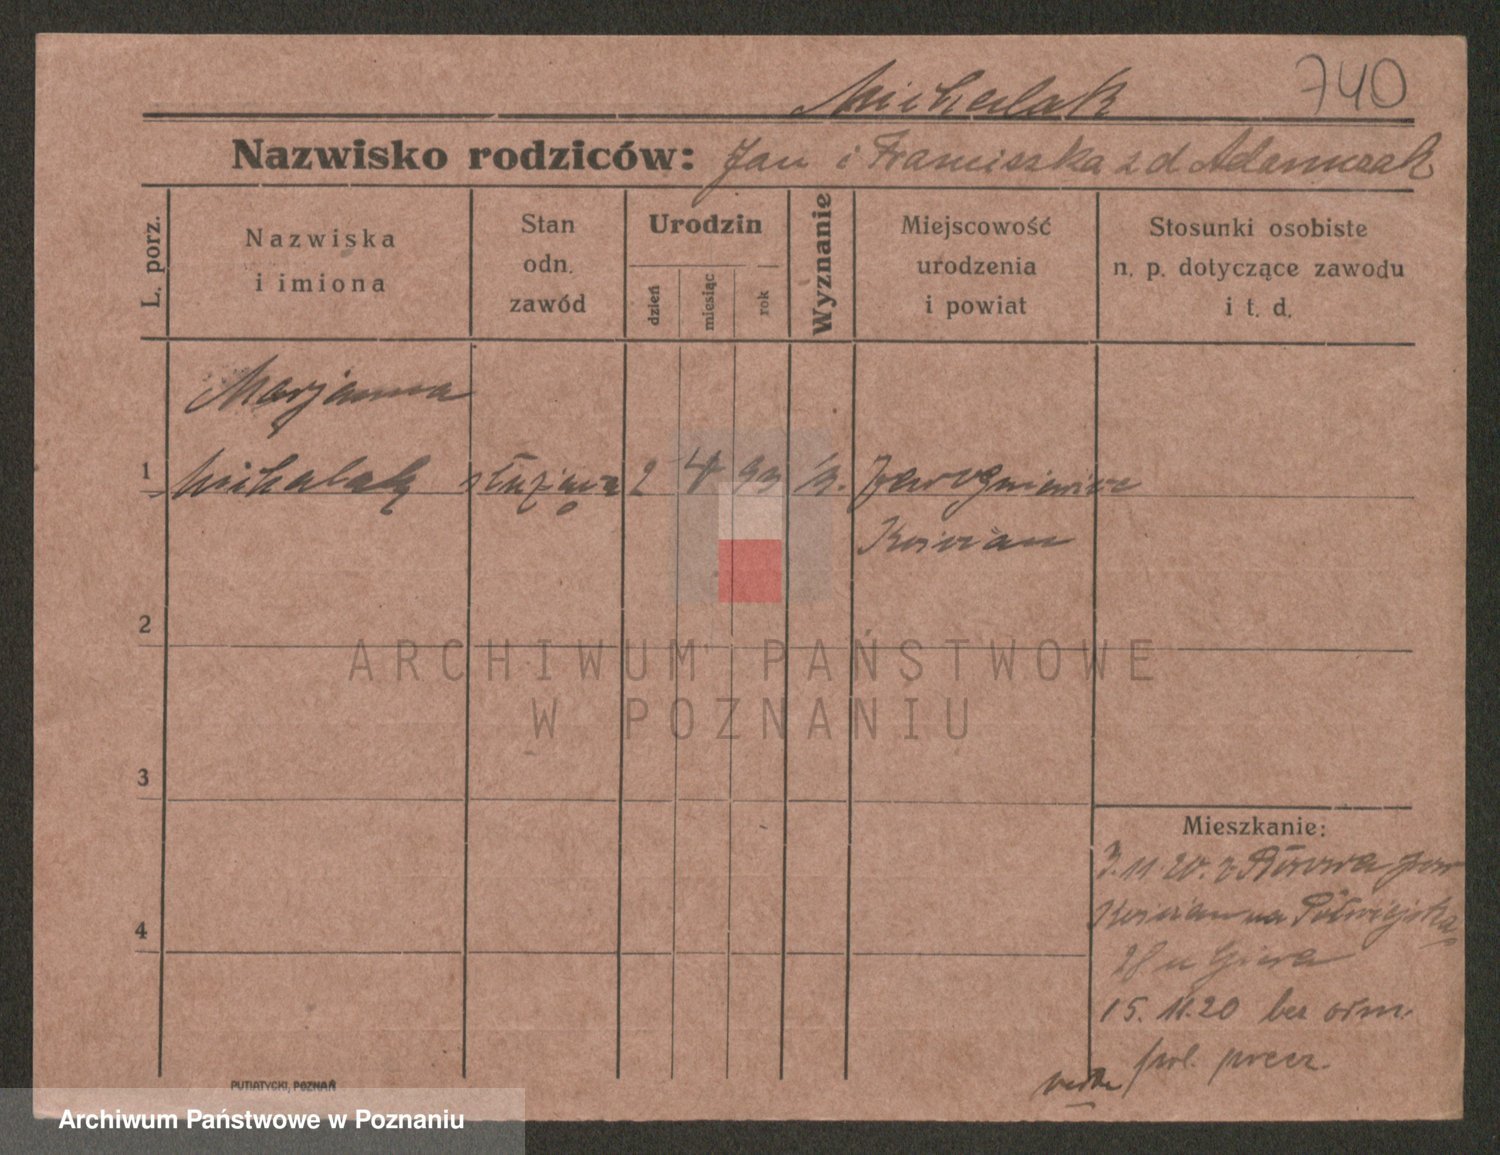 Michalak
740
Nazwisko rodziców: Jan i Franciszka z d Adamczak
L. porz.
Nazwiska
i imiona
Stan
odn.
zawód
Urodzin
dzień
miesiąc
rok
Wyznanie
Miejscowość
urodzenia
i powiat
Stosunki osobiste
n. p. dotyczące zawodu
i t. d.
Marjanna
1 Michalak służąca 2 4 93 Jarogniewice
Kościan
2
ARCHIWUM PAŃSTWOWE
W POZNANIU
3
4
Mieszkanie:
3.11.20. z pow
Kościan na Półwiejska
28 u Giera
15.11.20 bez odm.
pol. precz.
PUTIATYCKI, POZNAŃ
Archiwum Państwowe w Poznaniu